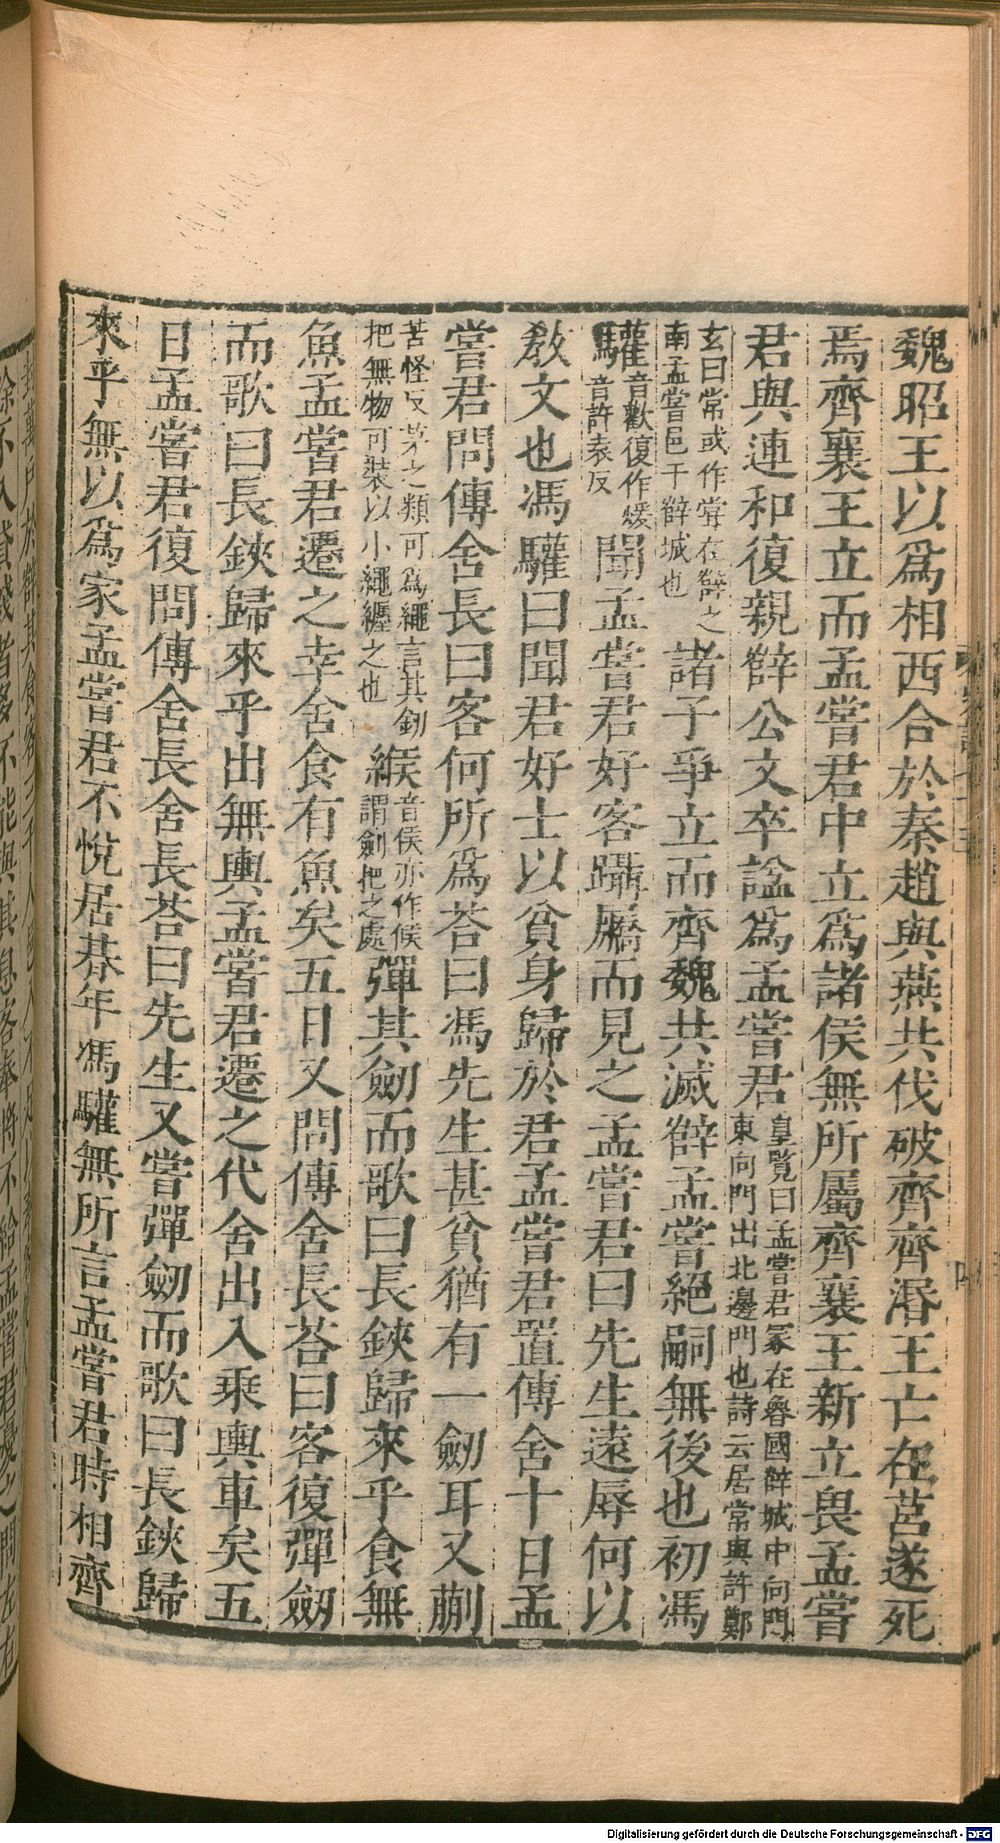 魏昭王以爲相西合於秦趙與燕共伐破齊齊湣王亡在莒遂死
焉齊襄王立而孟嘗君中立爲諸侯無所屬齊襄王新立畏孟嘗
君與連和復親薛公文卒諡爲孟嘗君皇覽曰孟嘗君冢在魯國薛城中向門東向門出北邊門也詩云居常與許鄭
玄曰常或作嘗在薛之南孟嘗邑于薛城也諸子爭立而齊魏共滅薛孟嘗絕嗣無後也初馮
驩音歡復作煖音許袁反聞孟嘗君好客躡屩而見之孟嘗君曰先生遠辱何以
敎文也馮驩曰聞君好士以貧身歸於君孟嘗君置傳舍十日孟
嘗君問傳舍長曰客何所爲荅曰馮先生甚貧猶有一劒耳又蒯
苦怪反茅之類可爲繩言其劒把無物可裝以小繩纒之也緱音侯亦作候謂劒把之處彈其劒而歌曰長鋏歸來乎食無
魚孟嘗君遷之幸舍食有魚矣五日又問傳舍長荅曰客復彈劒
而歌曰長鋏歸來乎出無輿孟嘗君遷之代舍出入乘輿車矣五
日孟嘗君復問傳舍長舍長荅曰先生又嘗彈劒而歌曰長鋏歸
來乎無以爲家孟嘗君不悅居朞年馮驩無所言孟嘗君時相齊
封萬戶於薛其食客三千人邑入不足以奉
餘不入貸錢者多不能與其息客奉將不給孟嘗君憂之問左右
Digitalisierung gefördert durch die Deutsche Forschungsgemeinschaft - DFG